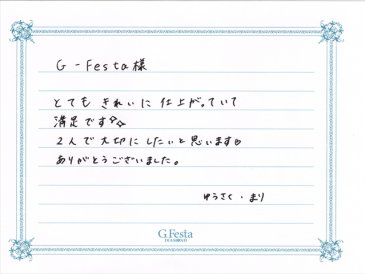 G-Festa様
とても きれいに 仕上がっていて
満足です✨
2人で大切にしたいと思います♡
ありがとうございました。
ゆうさく・まり
G.Festa
DIAMOND